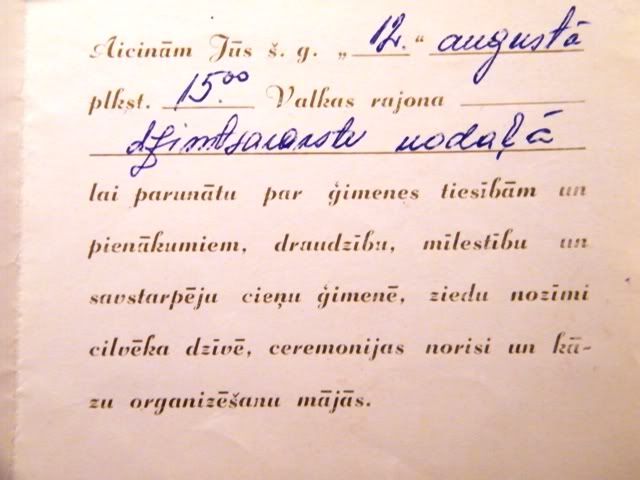 Aicinām Jūs š. g. „12.“ augustā
plkst. 15.00 Valkas rajona
dzimtsarakstu nodaļā
lai parunātu par ģimenes tiesībām un
pienākumiem, draudzību, mīlestību un
savstarpēju cieņu ģimenē, ziedu nozīmi
cilvēka dzīvē, ceremonijas norisi un kā-
zu organizēšanu mājās.